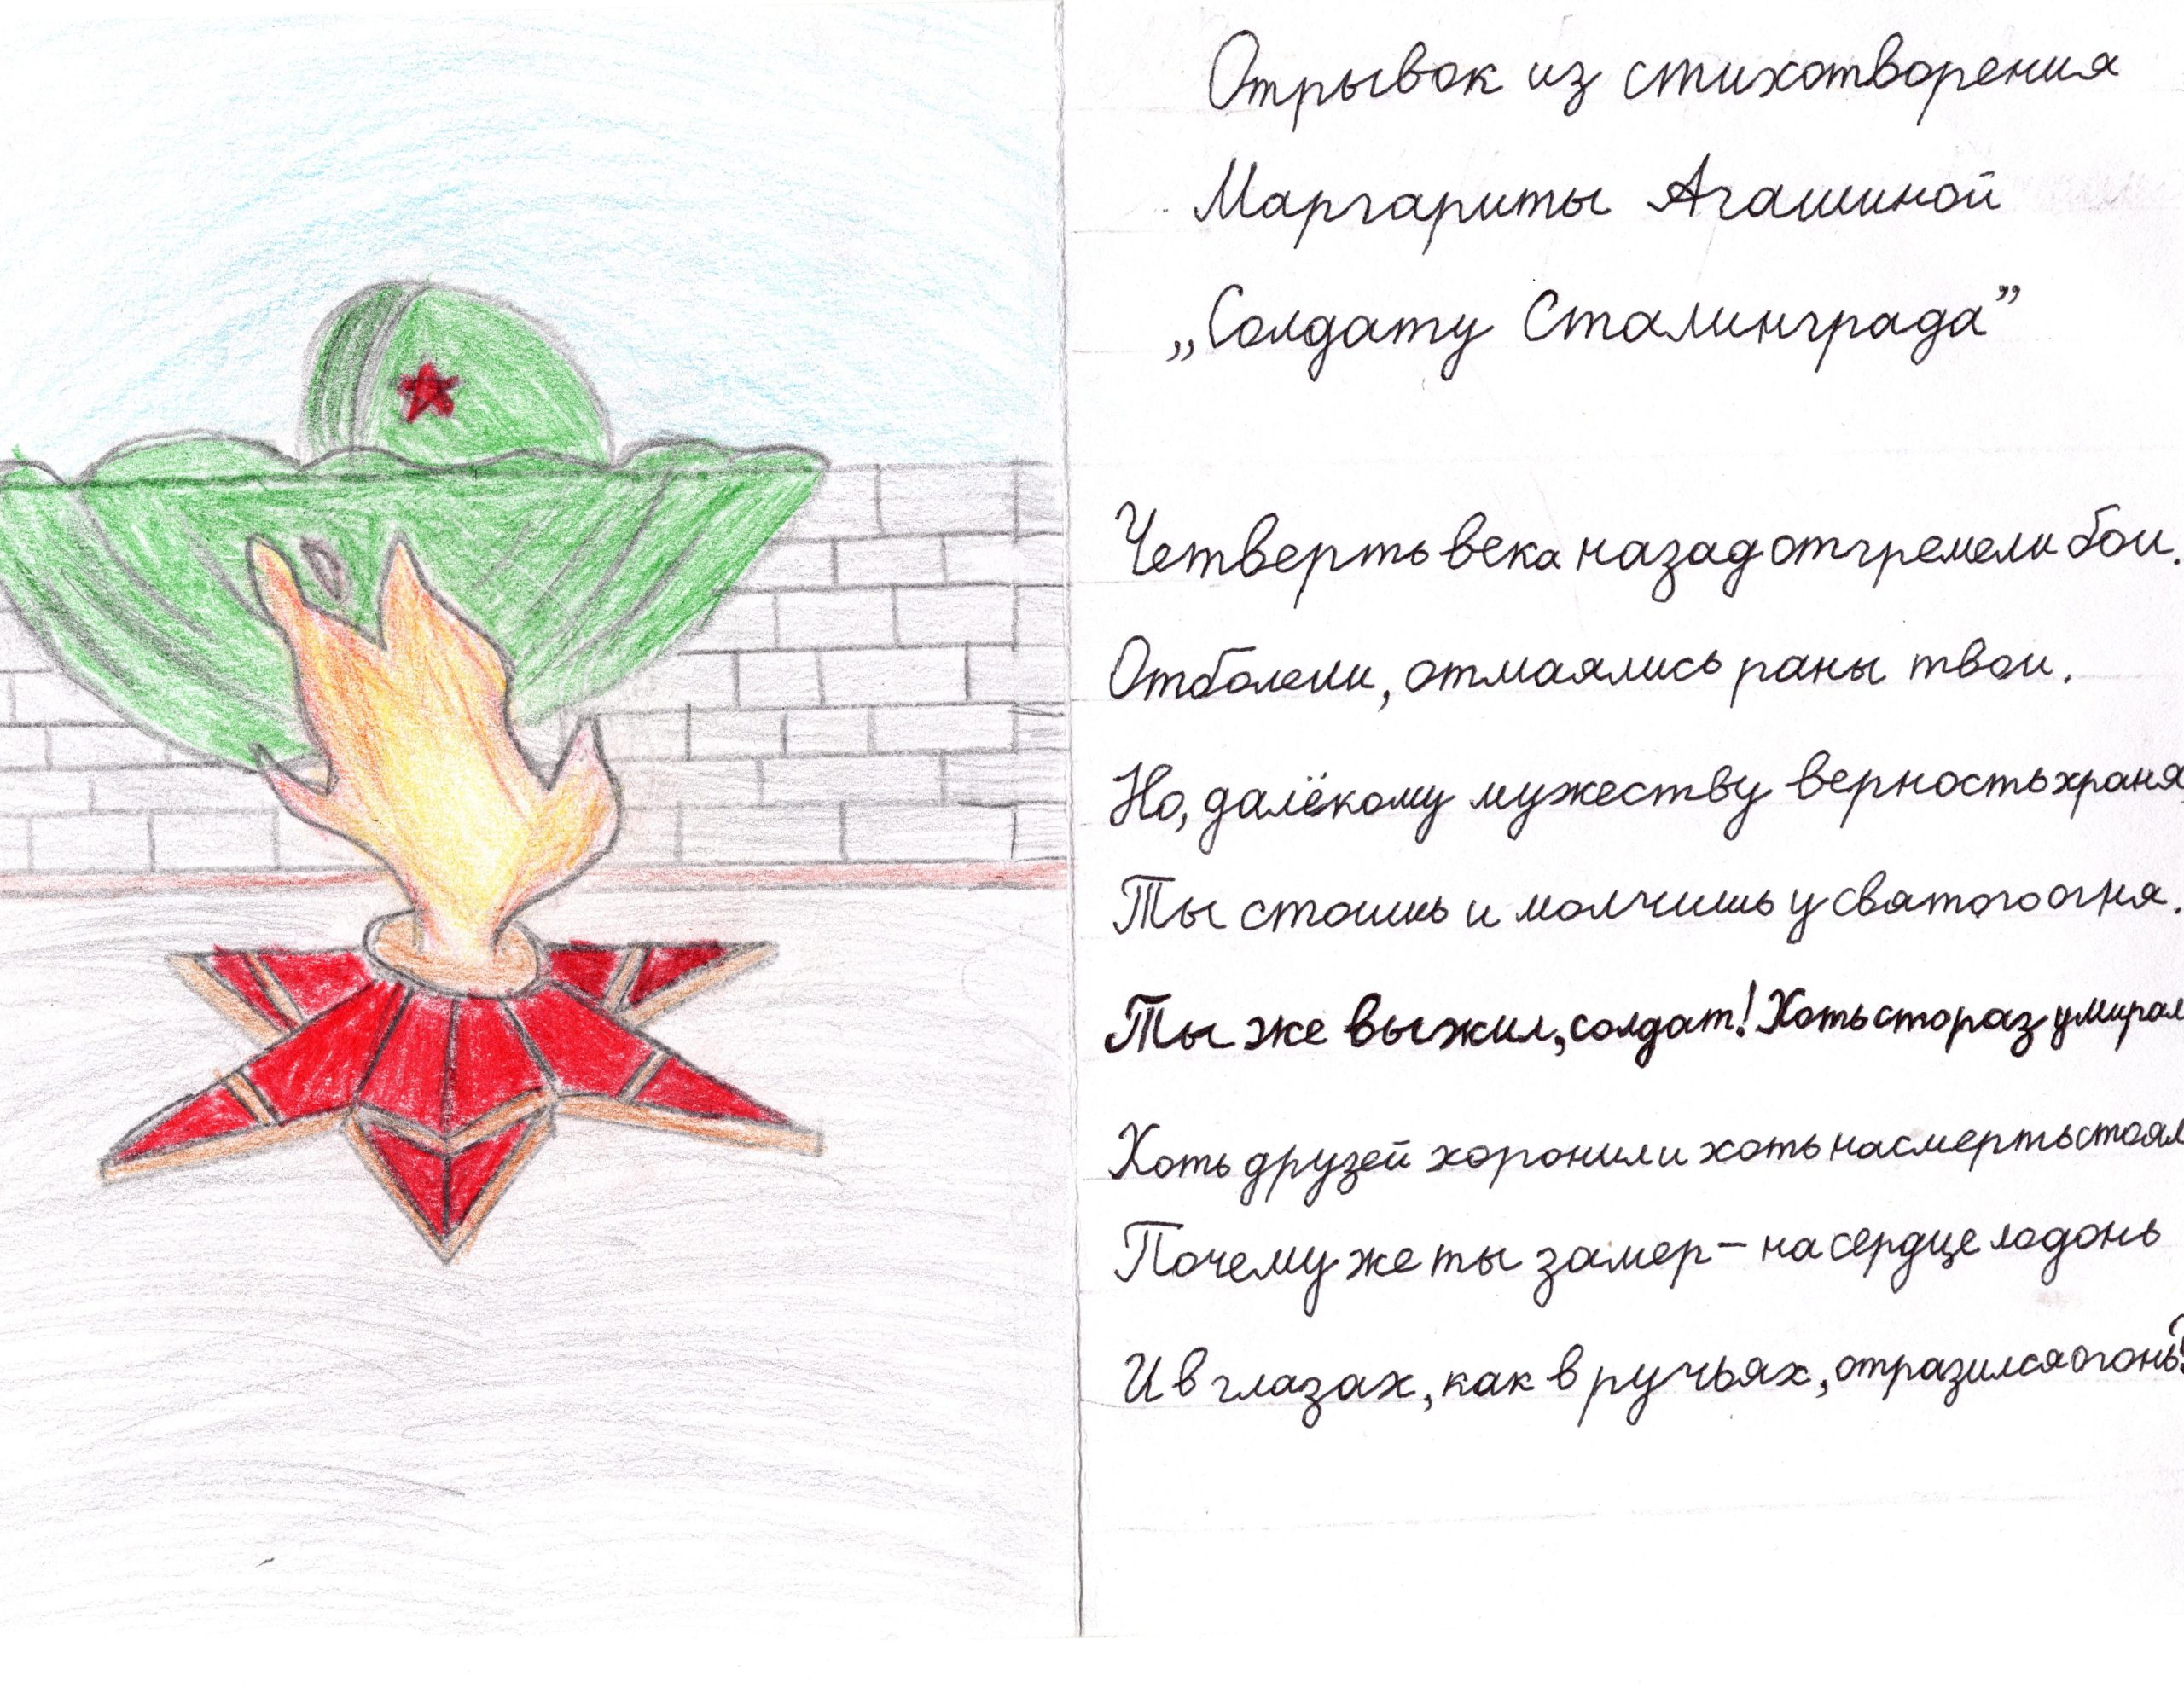 Отрывок из стихотворения
Маргариты Агашиной
„Солдату Сталинграда”
Четверть века назад отгремели бои.
Отболели, отмаялись раны твои.
Но, далёкому мужеству верность храня
Ты стоишь и молчишь у святого огня.
Ты же выжил, солдат! Хоть сто раз умирал
Хоть друзей хоронил и хоть насмерть стоял
Почему же ты замер – на сердце ладонь
И в глазах, как в ручьях, отразился огонь?